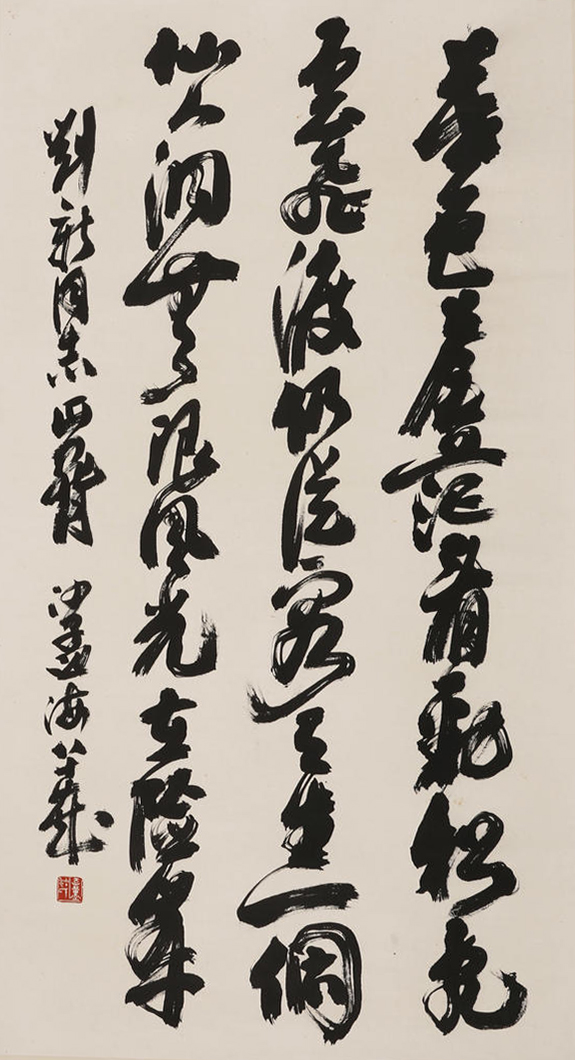 暮色蒼茫看勁松乱
雲飛渡仍從容天生一個
仙人洞無限風光在險峯
劉新同志正 沙孟海八十歲